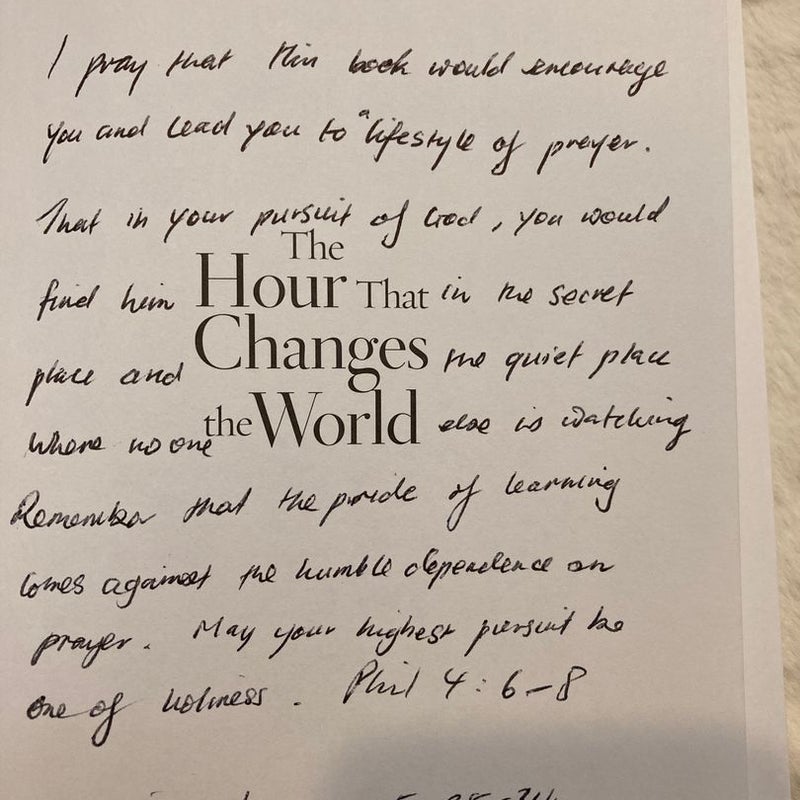 I pray that this book would encourage
you and lead you to a lifestyle of prayer.
That in your pursuit of God, you would
The
find him Hour That in the secret
place and Changes the quiet place
where no one the World else is watching
Remember that the pride of learning
comes against the humble dependence on
prayer. May your highest pursuit be
one of holiness. Phil 4:6-8